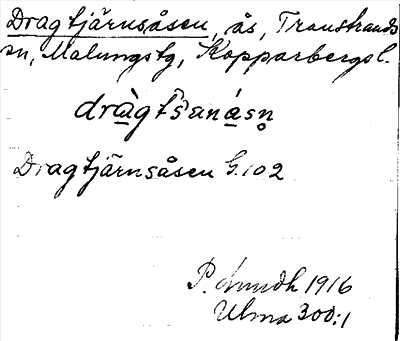 Dragtjärnsåsen, ås, Transtrands
sn, Malungs tg, Kopparbergs l.
dràgtšanásn̥
Dragtjärnsåsen G.102
P. Lundh 1916
Ulma 300:1